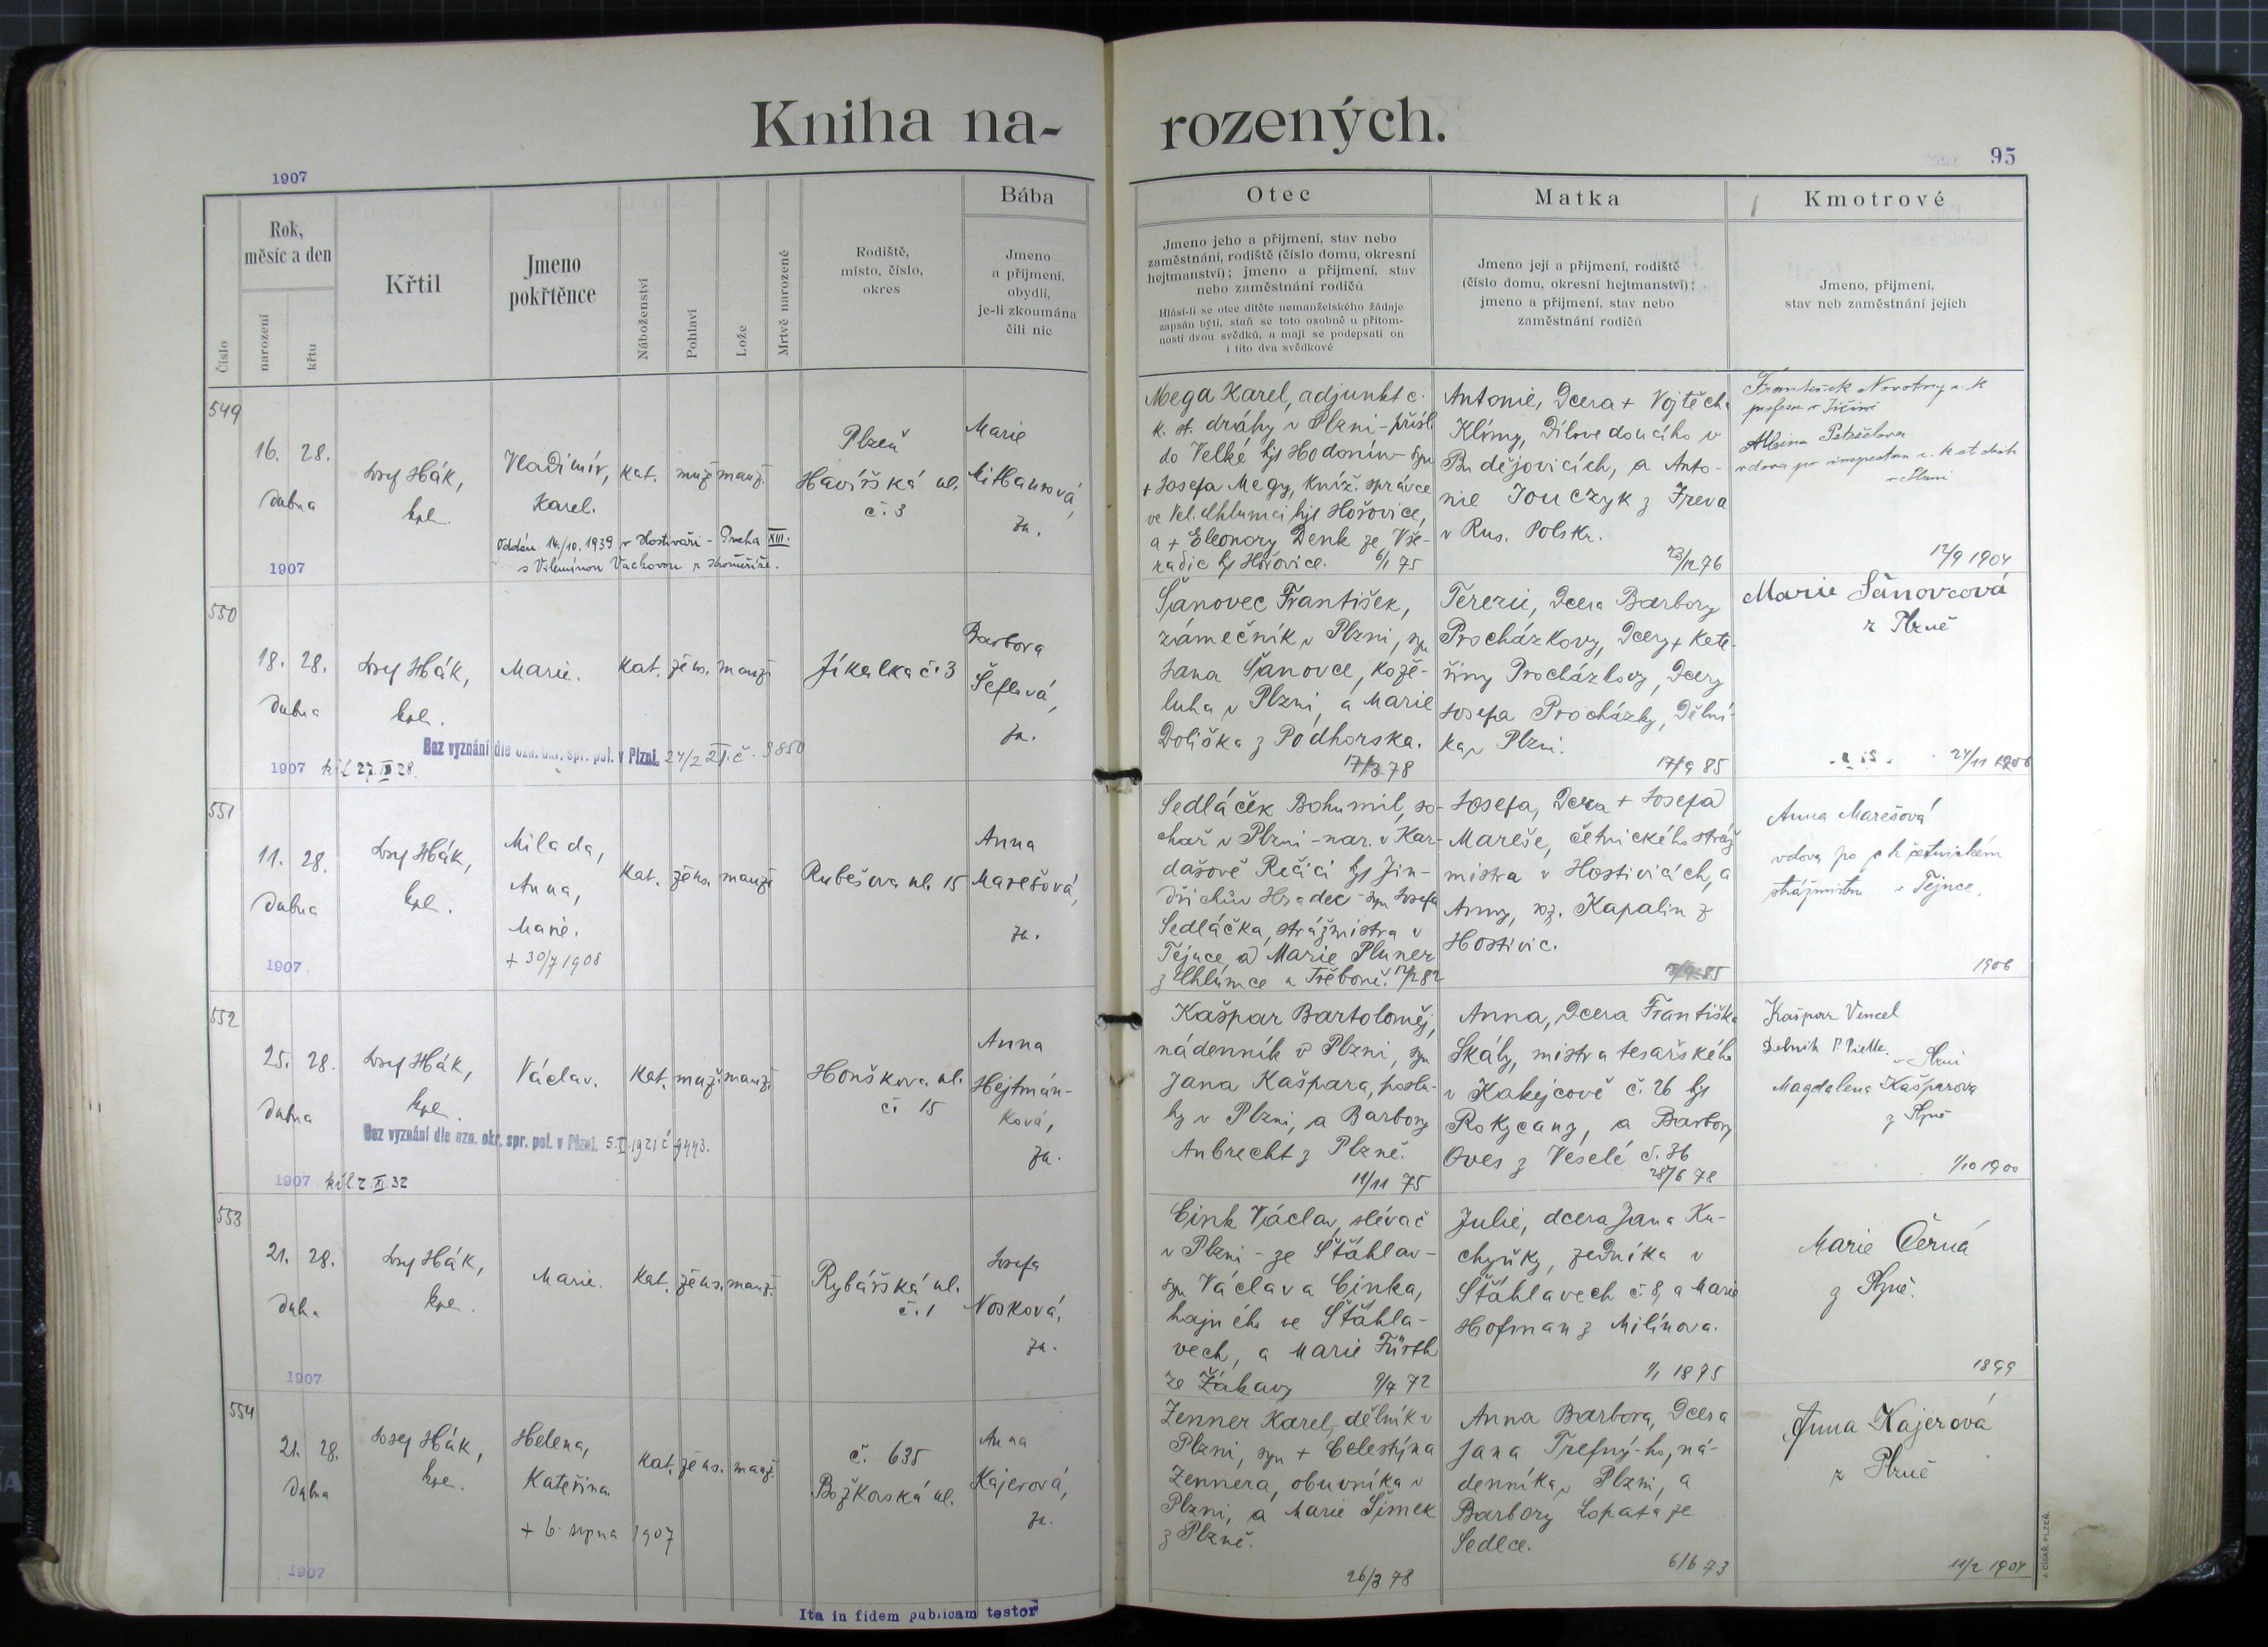 Kniha na-
rozených.
1907
95
Číslo
Rok,
měsíc a den
narození
křtu
Křtil
Jmeno
pokřtěnce
Náboženství
Pohlaví
Lože
Mrtvě narozené
Rodiště,
místo, číslo,
okres
Bába
Jmeno
a příjmení,
obydlí,
je-li zkoumána
čili nic
Otec
Jmeno jeho a přijmení, stav nebo
zaměstnání, rodiště (číslo domu, okresní
hejtmanství); jmeno a přijmení, stav
nebo zaměstnání rodičů
Hlásí-li se otec dítěte nemanželského žádaje
zapsán býti, staň se toto osobně u přítom-
nosti dvou svědků, a mají se podepsati on
i tito dva svědkové
Matka
Jmeno její a přijmení, rodiště
(číslo domu, okresní hejtmanství);
jmeno a přijmení, stav nebo
zaměstnání rodičů
Kmotrové
Jmeno, přijmení,
stav neb zaměstnání jejich
549
16. 28.
dubna
1907
Josef Hák,
kpl.
Vladimír,
Karel.
Oddán 14./10. 1939 v Hostivaři - Praha XIII.
s Vilemínou Vachovou z Kroměříže.
kat. muž. manž.
Plzeň
Havířská ul.
č. 3
Marie
Mithausová,
zk.
Mega Karel, adjunkt c.
k. st. dráhy v Plzni - přísl.
do Velké hjt Hodonín - syn
+ Josefa Megy, kníž. správce
ve Vel. Chlumci hjt Hořovice,
a + Eleonory Denk ze Vše-
radic hjt Hořovice. 6/1 75
Antonie, dcera + Vojtěcha
Klímy, dílovedoucího v
Budějovicích, a Anto-
nie Jouczyk z Freva
v Rus. Polsku.
23/12 76
František Novotný c. k.
profesor v Jičíně
Albina Petrželova
vdova po inspektoru c. k. st. dráh
v Plzni
12/9 1904
550
18. 28.
dubna
1907
Josef Hák,
kpl.
Marie.
kat. žens. manž.
Bez vyznání dle ozn. okr. spr. pol. v Plzni. 24/2 21. č. 3850
Jikalka č. 3
Barbora
Šeflová,
zk.
Šanovec František,
zámečník v Plzni, syn
Jana Šanovce, kože-
luha v Plzni, a Marie
Doliška z Podhorska.
17/3 78
Terezie, dcera Barbory
Procházkovy, dcery + Kate-
řiny Procházkovy, dcery
Josefa Procházky, dělní-
ka v Plzni.
17/9 85
Marie Šanovcová
z Plzně
24/11 1906
551
11. 28.
dubna
1907
Josef Hák,
kpl.
Milada,
Anna,
Marie.
+ 30/7 1908
kat. žens. manž.
Rubešova ul. 15
Anna
Marešová,
zk.
Sedláček Bohumil, so-
chař v Plzni - nar. v Kar-
dašově Řečici hjt Jin-
dřichův Hradec - syn Josefa
Sedláčka, strážmistra v
Týnce, a Marie Pluner
z Chlumce u Třeboně. 12/2 82
Josefa, dcera + Josefa
Mareše, četnického stráž-
mistra v Hostivicích, a
Anny, roz. Kapalin z
Hostivic.
Anna Marešová
vdova po c k četnickém
strážmistru v Tejnce.
1906
552
25. 28.
dubna
1907
Josef Hák,
kpl.
Václav.
kat. muž. manž.
Bez vyznání dle ozn. okr. spr. pol. v Plzni. 5.I.1921 č 9443.
Houškova ul.
č. 15
Anna
Hejtmán-
ková,
zk.
Kašpar Bartoloměj,
nádenník v Plzni, syn
Jana Kašpara, poslu-
hy v Plzni, a Barbory
Aubrecht z Plzně.
11/11 75
Anna, dcera Františka
Skály, mistra tesařského
v Kakejcově č. 26 hjt
Rokycany, a Barbory
Oves z Veselé č. 36
28/6 78
Kašpar Vencl
v Plzni
Magdalena Kašparova
z Plzně
1/10 1900
553
21. 28.
dubna
1907
Josef Hák,
kpl.
Marie.
kat. žens. manž.
Rybářská ul.
č. 1
Josefa
Nosková,
zk.
Cink Václav, slévač
v Plzni - ze Šťáhlav -
syn Václava Cinka,
hajného ve Šťáhla-
vech, a Marie Fürth
ze Žákavy 9/7 72
Julie, dcera Jana Ku-
chyňky, zedníka v
Šťáhlavech č. 8, a Marie
Hofman z Milínova.
1/1 1875
Marie Černá
z Plzně.
1899
554
21. 28.
dubna
1907
Josef Hák,
kpl.
Helena,
Kateřina.
+ 6. srpna 1907
kat. žens. manž.
č. 635
Božkovská ul.
Anna
Kajerová,
zk.
Zenner Karel, dělník v
Plzni, syn + Celestýna
Zennera, obuvníka v
Plzni, a Marie Šimek
z Plzně.
26/3 78
Anna Barbora, dcera
Jana Trefný-ho, ná-
denníka v Plzni, a
Barbory Lopata ze
Sedlce.
6/6 73
Anna Kajerová
z Plzně
11/2 1904
Ita in fidem publicam testor
J. CÍSAŘ, PLZEŇ.